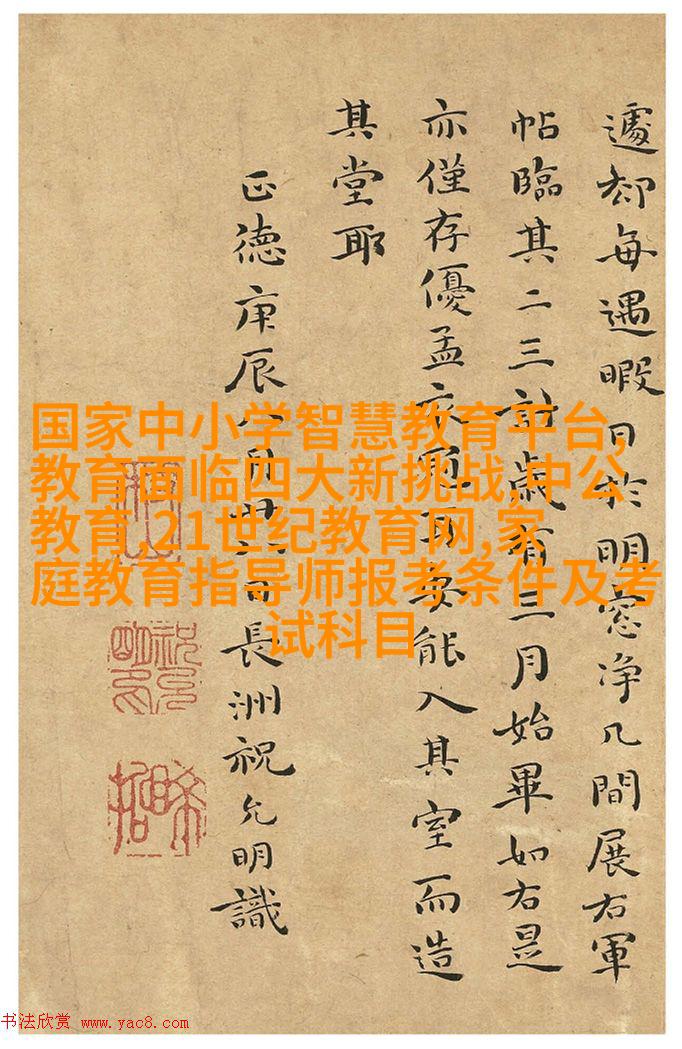 遽却每遇暇日於明窓净几間展右軍
帖臨其二三計歲有三月始畢如右是
亦僅存優孟衣耳安能入其室而造
其堂耶
正德庚辰八月日長洲祝允明識
国家中小学智慧教育平台,
教育面临四大新挑战,中公
教育,21世纪教育网,家
庭教育指导师报考条件及考
试科目
书法欣赏 www.yac8.com